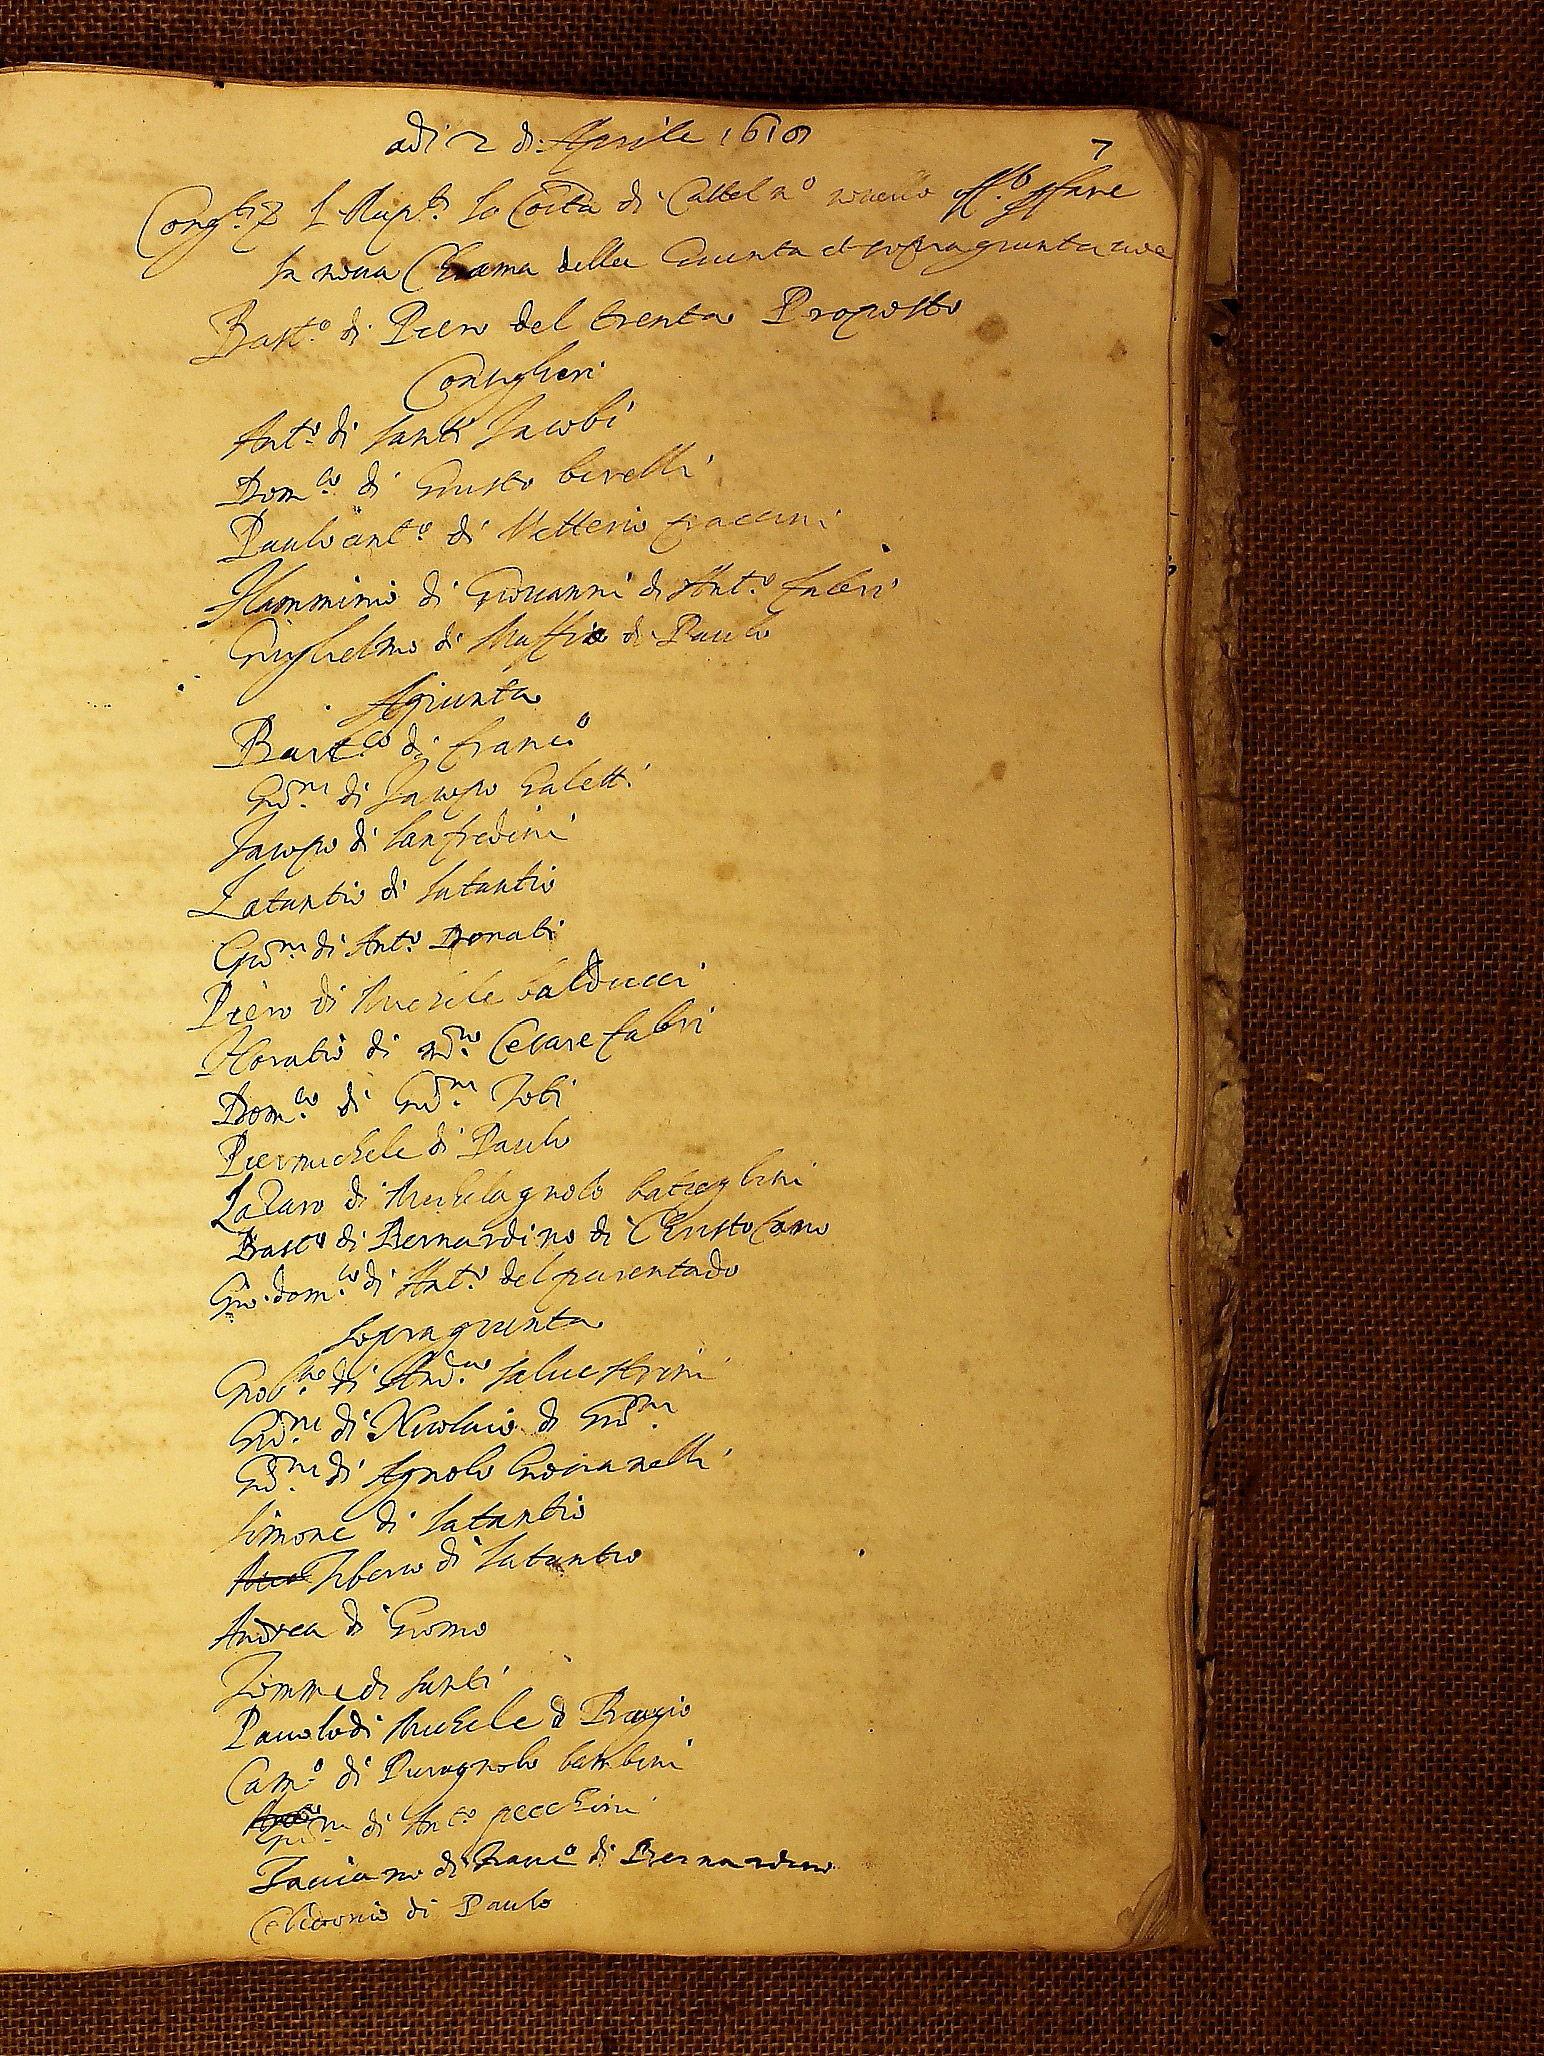 adi 2 di Aprile 1619
7
Cong.ti la Co.ita di Castel n.o novello
la nova Chiama della Giunta et sopragiunta cioe
Bast.o di Piero del trenta Proposto
Consiglieri
Ant.o di santi Jacobi
Dom.co di Giusto birelli
Paulo ant.o di Vetterio
Flamminio di Giovanni di Ant.o fabri
Guglielmo di Maffio di Paulo
Agiunta
Bart.eo di franc.o
Gio.ni di Jacopo Galetti
Jacopo di Lanfredini
Latantio di latantio
Gio.ni di Ant.o Donati
Piero di Michele balducci
Horatio di Cesare fabri
Dom.co di Gio.ni Tobi
Piermichele di Paulo
Lazaro di Michelagnolo bataglini
Bast.o di Bernardino di Christofano
Gio.dom.co di Ant.o del parentado
sopragiunta
di And.ea salvestrini
Gio.ni di Nicolaio di Gio.ni
Gio.ni di Agnolo Giovannelli
Simone di latantio
Tiberio di latantio
Andrea di Giomo
Tomme di santi
Pauolo di Michele di Biagio
Cam.o di Pieragnolo bambini
Gio.ni di Ant.o pecchini
di Franc.o di Bernardino
di Paulo